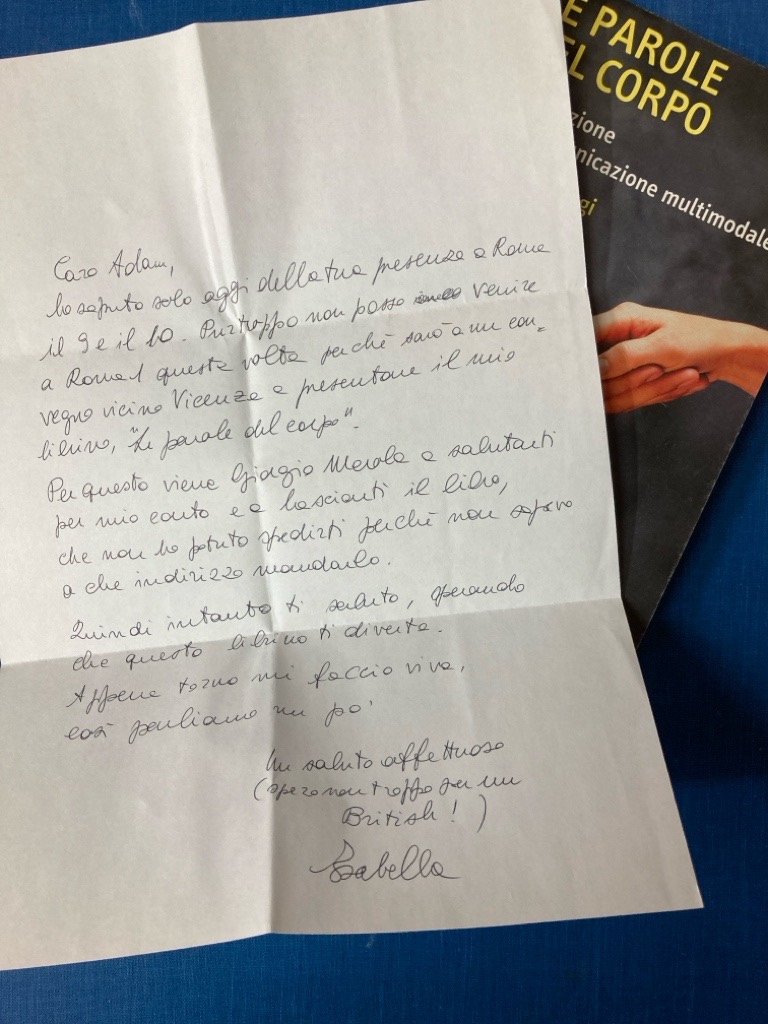 E PAROLE
EL CORPO
zione
nicazione multimodale
gi
Caro Adam,
ho saputo solo oggi della tua presenza a Roma
il 9 e il 10. Purtroppo non posso venire
a Roma questa volta perchè sarò a un con=
vegno vicino Vicenza a presentare il mio
librino, "Le parole del corpo".
Per questo viene Giorgio Merola a salutarti
per mio conto e a lasciarti il libro,
che non ho potuto spedirti perchè non sapevo
a che indirizzo mandarlo.
Quindi intanto ti saluto, sperando
che questo librino ti diverta.
Appena torno mi faccio viva,
così parliamo un po'
Un saluto affettuoso
(spero non troppo per un
British!)
Isabella